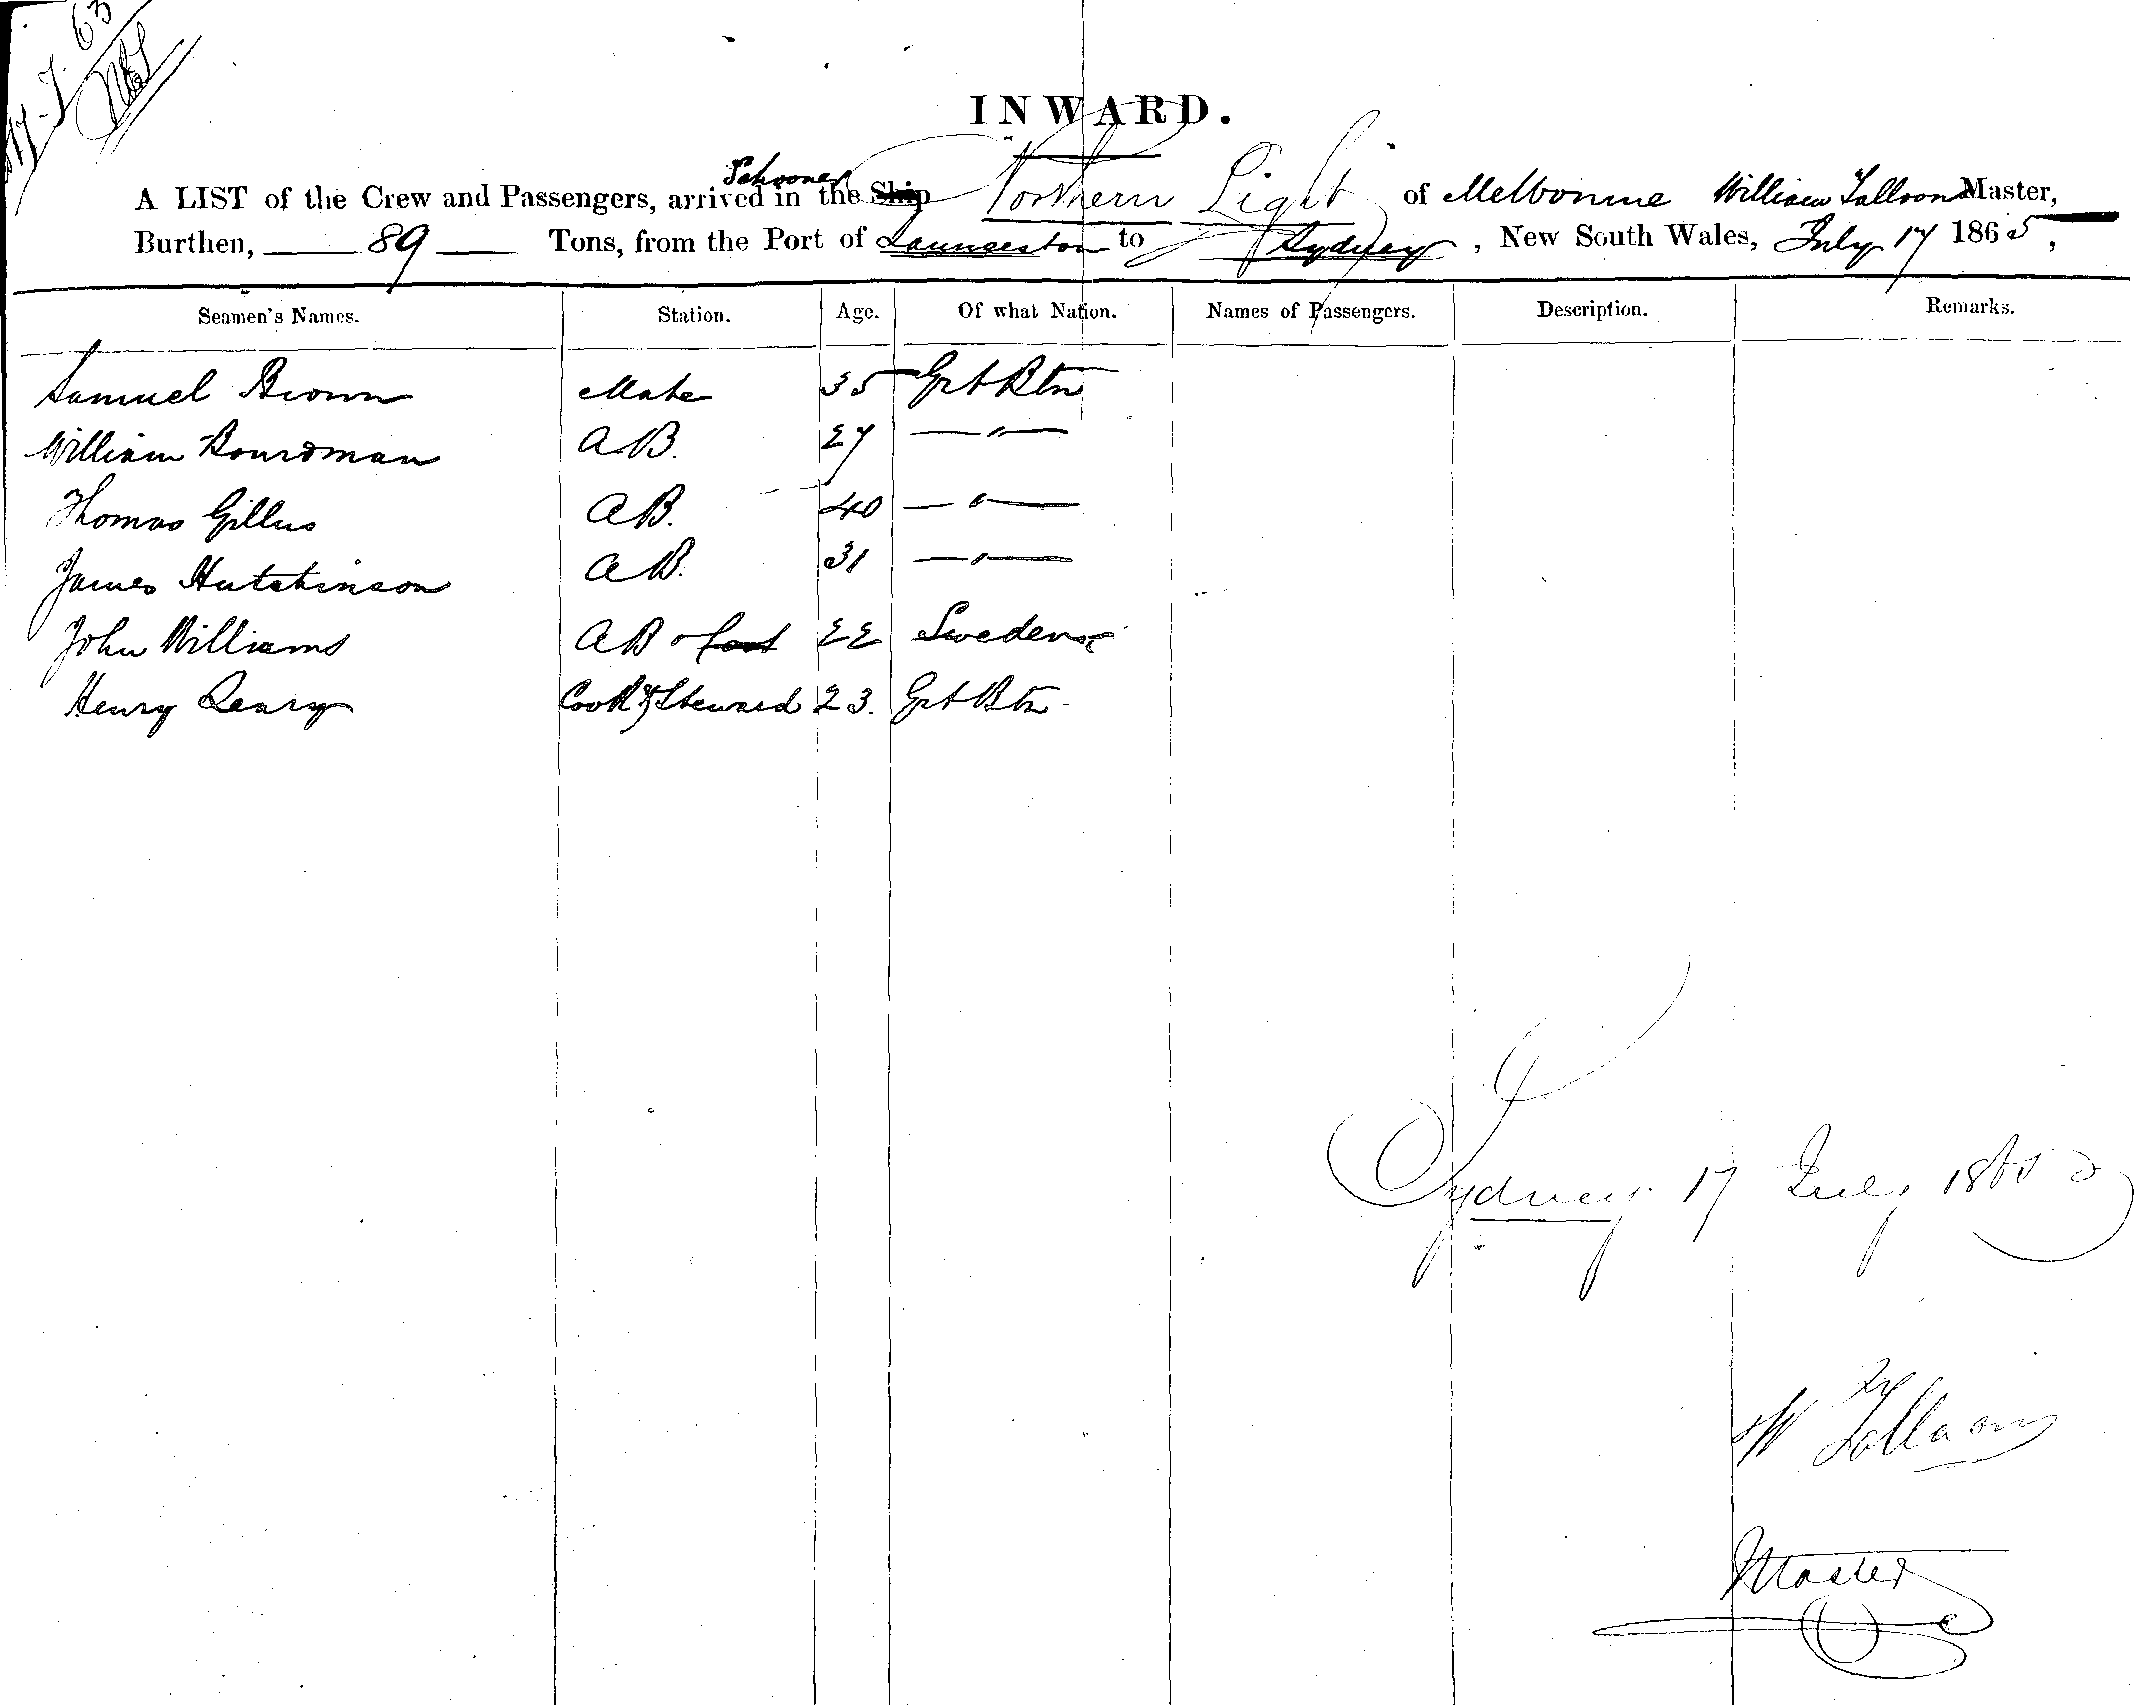 INWARD.
Schooner
A LIST of the Crew and Passengers, arrived in the Ship Northern Light of Melbourne William Tulloon Master,
Burthen, 89 Tons, from the Port of Launceston to Sydney, New South Wales, July 17 1865,
Seamen's Names. Station. Age. Of what Nation. Names of Passengers. Description. Remarks.
Samuel Brown Mate 35 Grt Btn
William Boardman AB. 27 — " —
Thomas Gillus AB. 40 — " —
James Hutchinson AB. 31 — " —
John Williams AB 22 Sweden
Henry Leary Cook & Steward 23. Grt Btn
Sydney 17 July 1865
W
Master